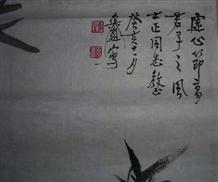 虚心節高
君子之風
士正同志
癸亥十一月
寫